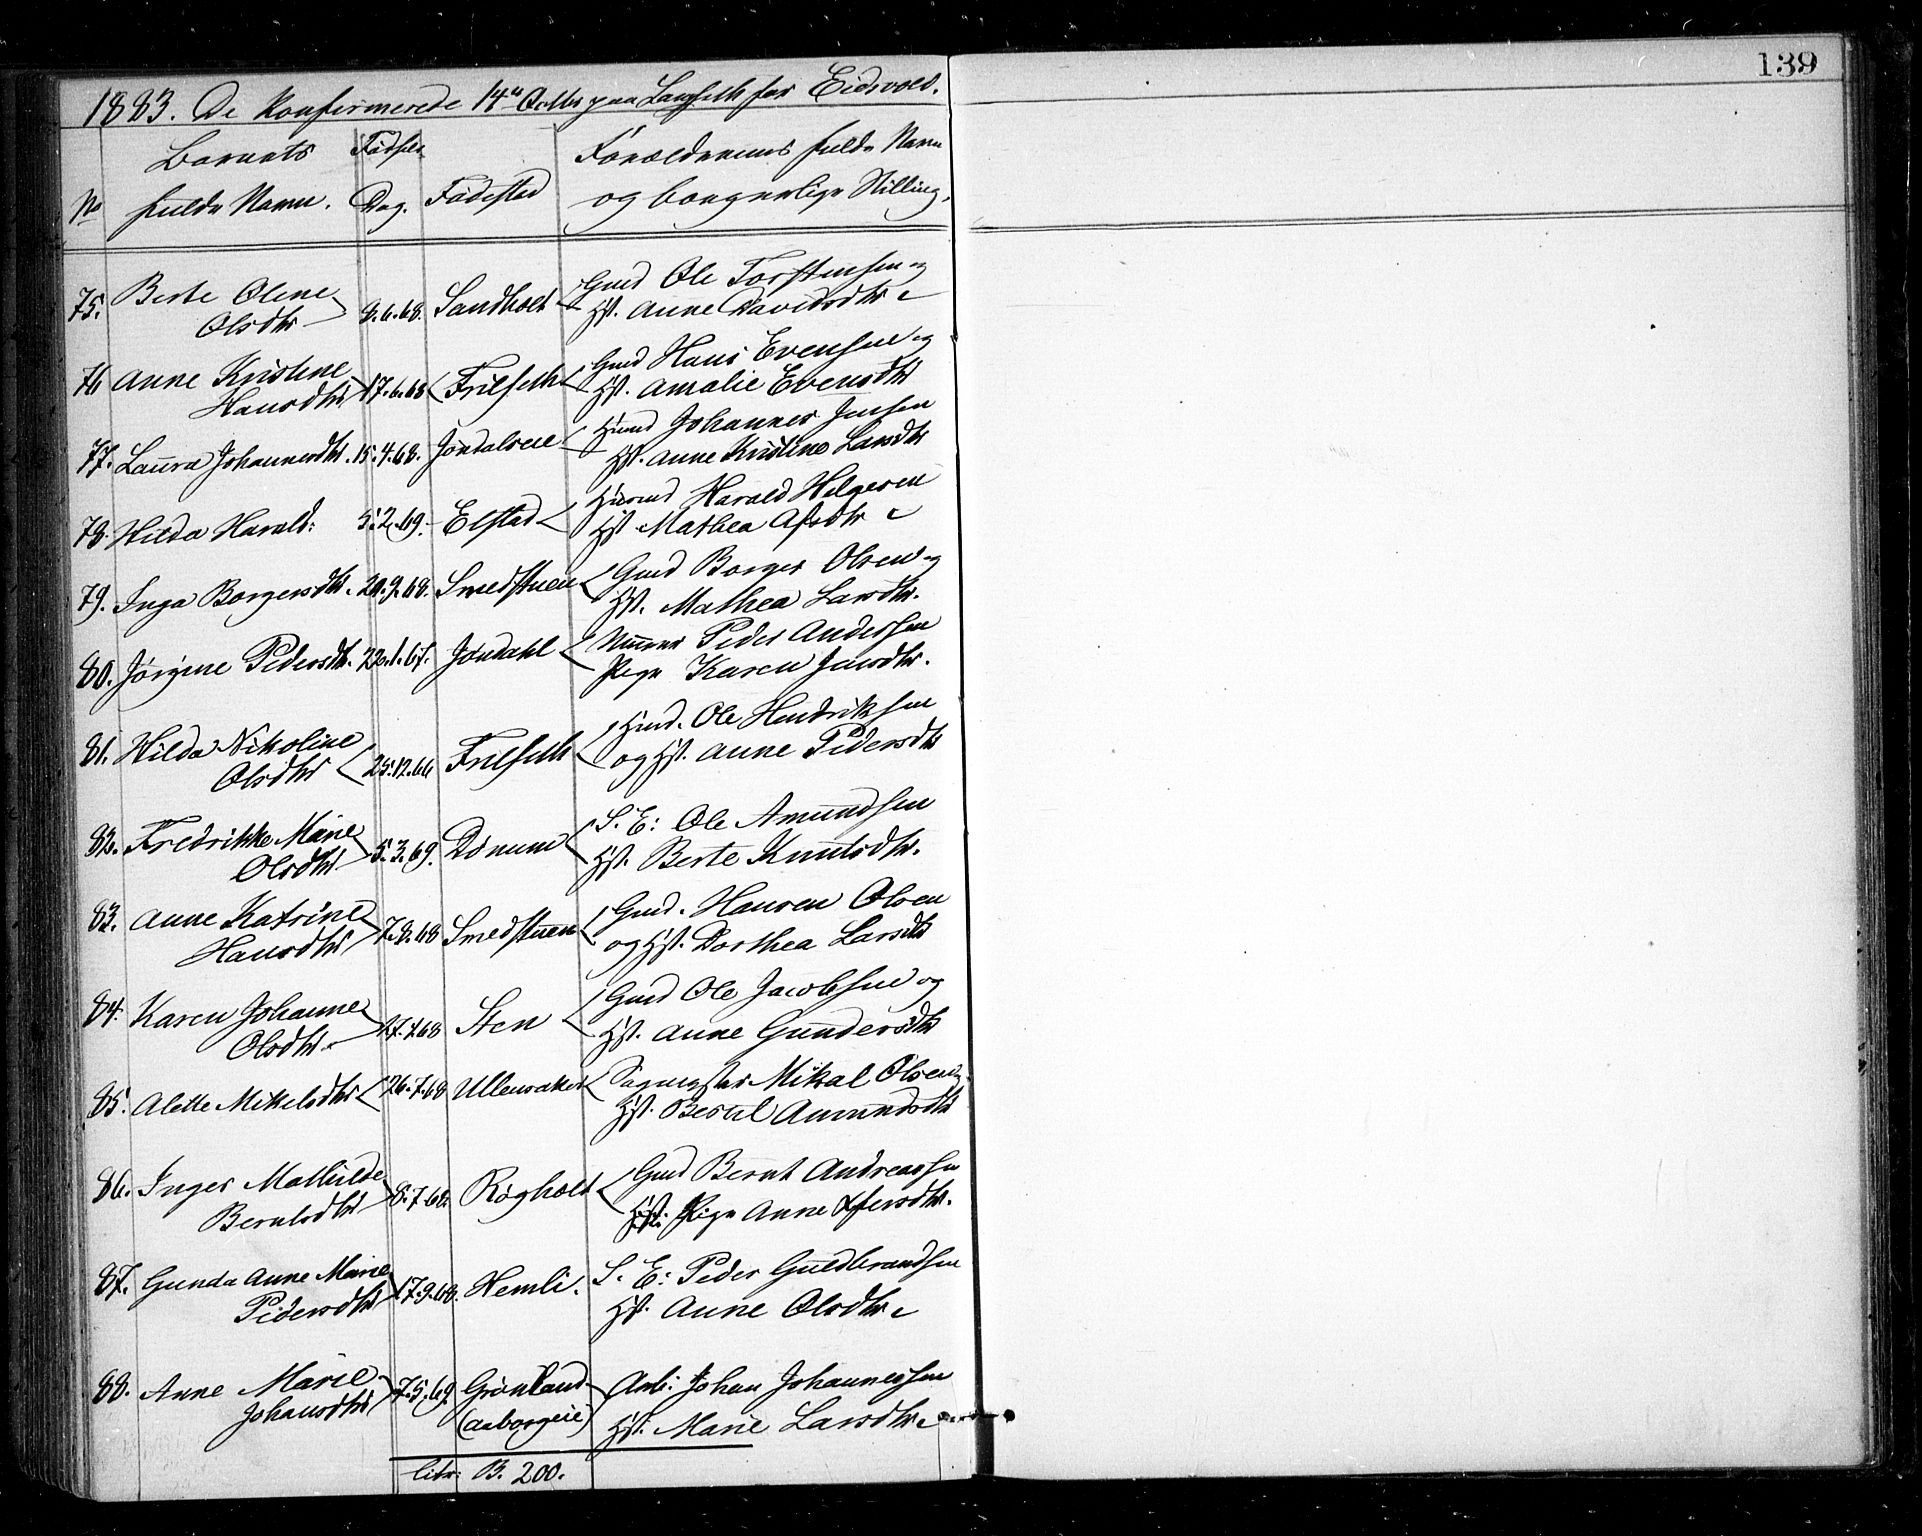 139
1883. De Konfirmerede 14de Octbr paa Langseth for Eidsvold.
Barnets Fødsels Forældrenes fulde Navn
No fulde Navn. Dag. Fødested og borgerlige Stilling.
75. Berte Oline Olsdtr 8.6.68. Sandholt Gmd Ole Torstensen og
Hst. Anne Davidsdtr
76 Anne Kristine Hansdtr 17.6.68 Frilseth Gmd Hans Evensen og
Hst. Amalie Evensdtr
77. Laura Johannesdtr. 15.4.68. Jøndalseie Husmd Johannes Jensen
Hst. Anne Kristine Larsdtr
78. Hilda Harald: 5.2.69. Elstad Husmd Harald Helgesen
Hst. Mathea
79. Inga Borgersdtr. 20.9.68. Smedstuen Gmd Borger Olsen og
Hst. Mathea Larsdtr.
80. Jørgine Pedersdtr. 22.1.67. Jøndahl Peder Andersen
Pige Karen Jensdtr.
81. Hilda Nikoline Olsdtr 25.12.66 Frilseth Husmd. Ole Hendriksen
og Hst. Anne Pedersdtr
82. Fredrikke Marie Olsdtr 5.3.69. Dønnum S. E: Ole Amundsen
Hst. Berte Knutsdtr.
83. Anne Katrine Hansdtr 7.8.68 Smedstuen Gmd. Hansen Olsen
og Hst. Dorthea Larsdtr
84. Karen Johanne Olsdtr. 27.7.68 Sten Gmd Ole Jacobsen og
Hst. Anne Gundersdtr
85. Alette Mikelsdtr 26.7.68 Ullensaker Sagmester Mikal Olsen og
Hst. Bertil Amundsdtr
86. Inger Mathilde Berntsdtr 8.7.68. Røgholt Gmd Bernt Andreassen
Hst. Pige Anne
87. Gunda Anne Marie Pedersdtr 17.9.68. Hemli. S. E: Peder Guldbrandsen
Hst. Anne Olsdtr
88. Anne Marie Johansdtr 7.5.69. Grønland Arb: Johan Johannessen
(aaborgeie) Hst. Marie Larsdtr.
litr: B. 200.